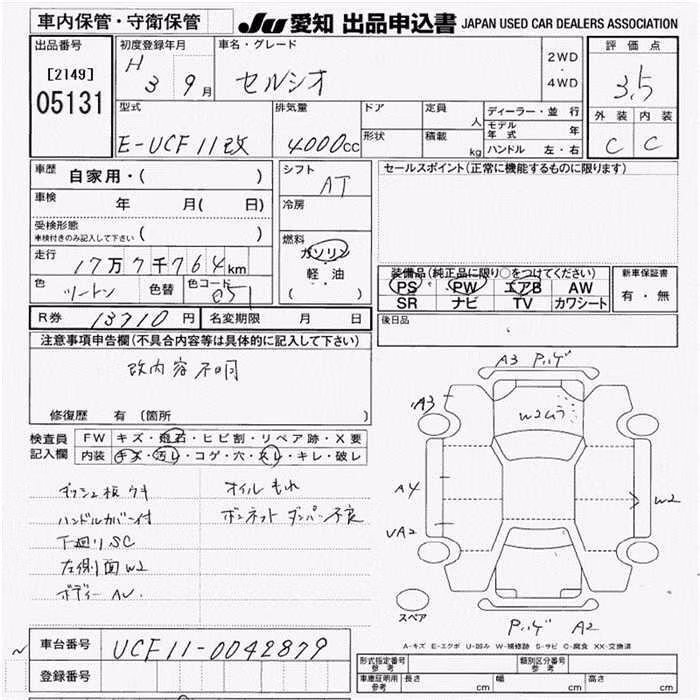 車内保管・守衛保管
JU 愛知 出品申込書 JAPAN USED CAR DEALERS ASSOCIATION
出品番号
[2149]
05131
初度登録年月
H 3 9月
車名・グレード
セルシオ
2WD
・
4WD
評価点
3.5
外装 内装
C C
型式
E-UCF11改
排気量
4000cc
ドア
形状
定員 人
積載 kg
ディーラー・並行
モデル年式 年
ハンドル 左・右
車歴 自家用・( )
車検 年 月( 日)
受検形態
車検付きのみ記入して下さい ( )
走行 17万7千764km
色 ツートン 色替 色コード 051
シフト AT
冷房
燃料
ガソリン
・
軽油
( )
セールスポイント(正常に機能するものに限ります)
装備品(純正品に限り○をつけてください)
PS・PW・エアB・AW
SR ナビ TV カワシート
新車保証書
有・無
後日品
R券 13710円 名変期限 月 日
注意事項申告欄(不具合内容等は具体的に記入して下さい)
改内容不明
修復歴 有 〔箇所 〕
検査員記入欄
FW キズ・飛石・ヒビ割・リペア跡・X要
内装 キズ・汚レ・コゲ・穴・スレ・キレ・破レ
ダッシュ板ウキ
ハンドルカバー付
下廻りSC
左側面W2
ボディーAU.
オイルもれ
ボンネットダンパー不良
A3 バンパ
A3
W2ムラ
A4
W2
UA2
スペア
バンパ A2
A-キズ E-エクボ U-凹み W-補修跡 S-サビ C-腐食 XX-交換済
車台番号 UCF11-0042879
登録番号
形式指定番号 参考
類別区分番号 参考
車庫証明用 参考 長さ cm 幅 cm 高さ cm